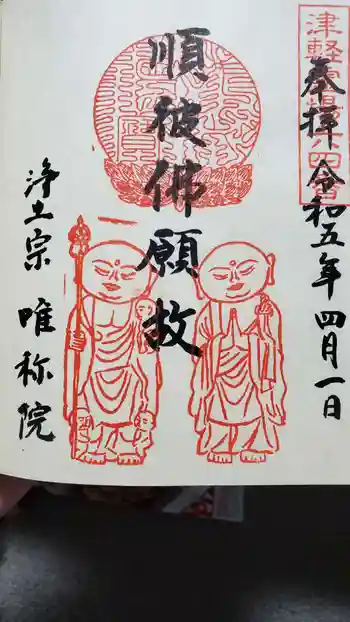 奉拝 令和五年 四月一日
順彼佛願故
浄土宗 唯称院